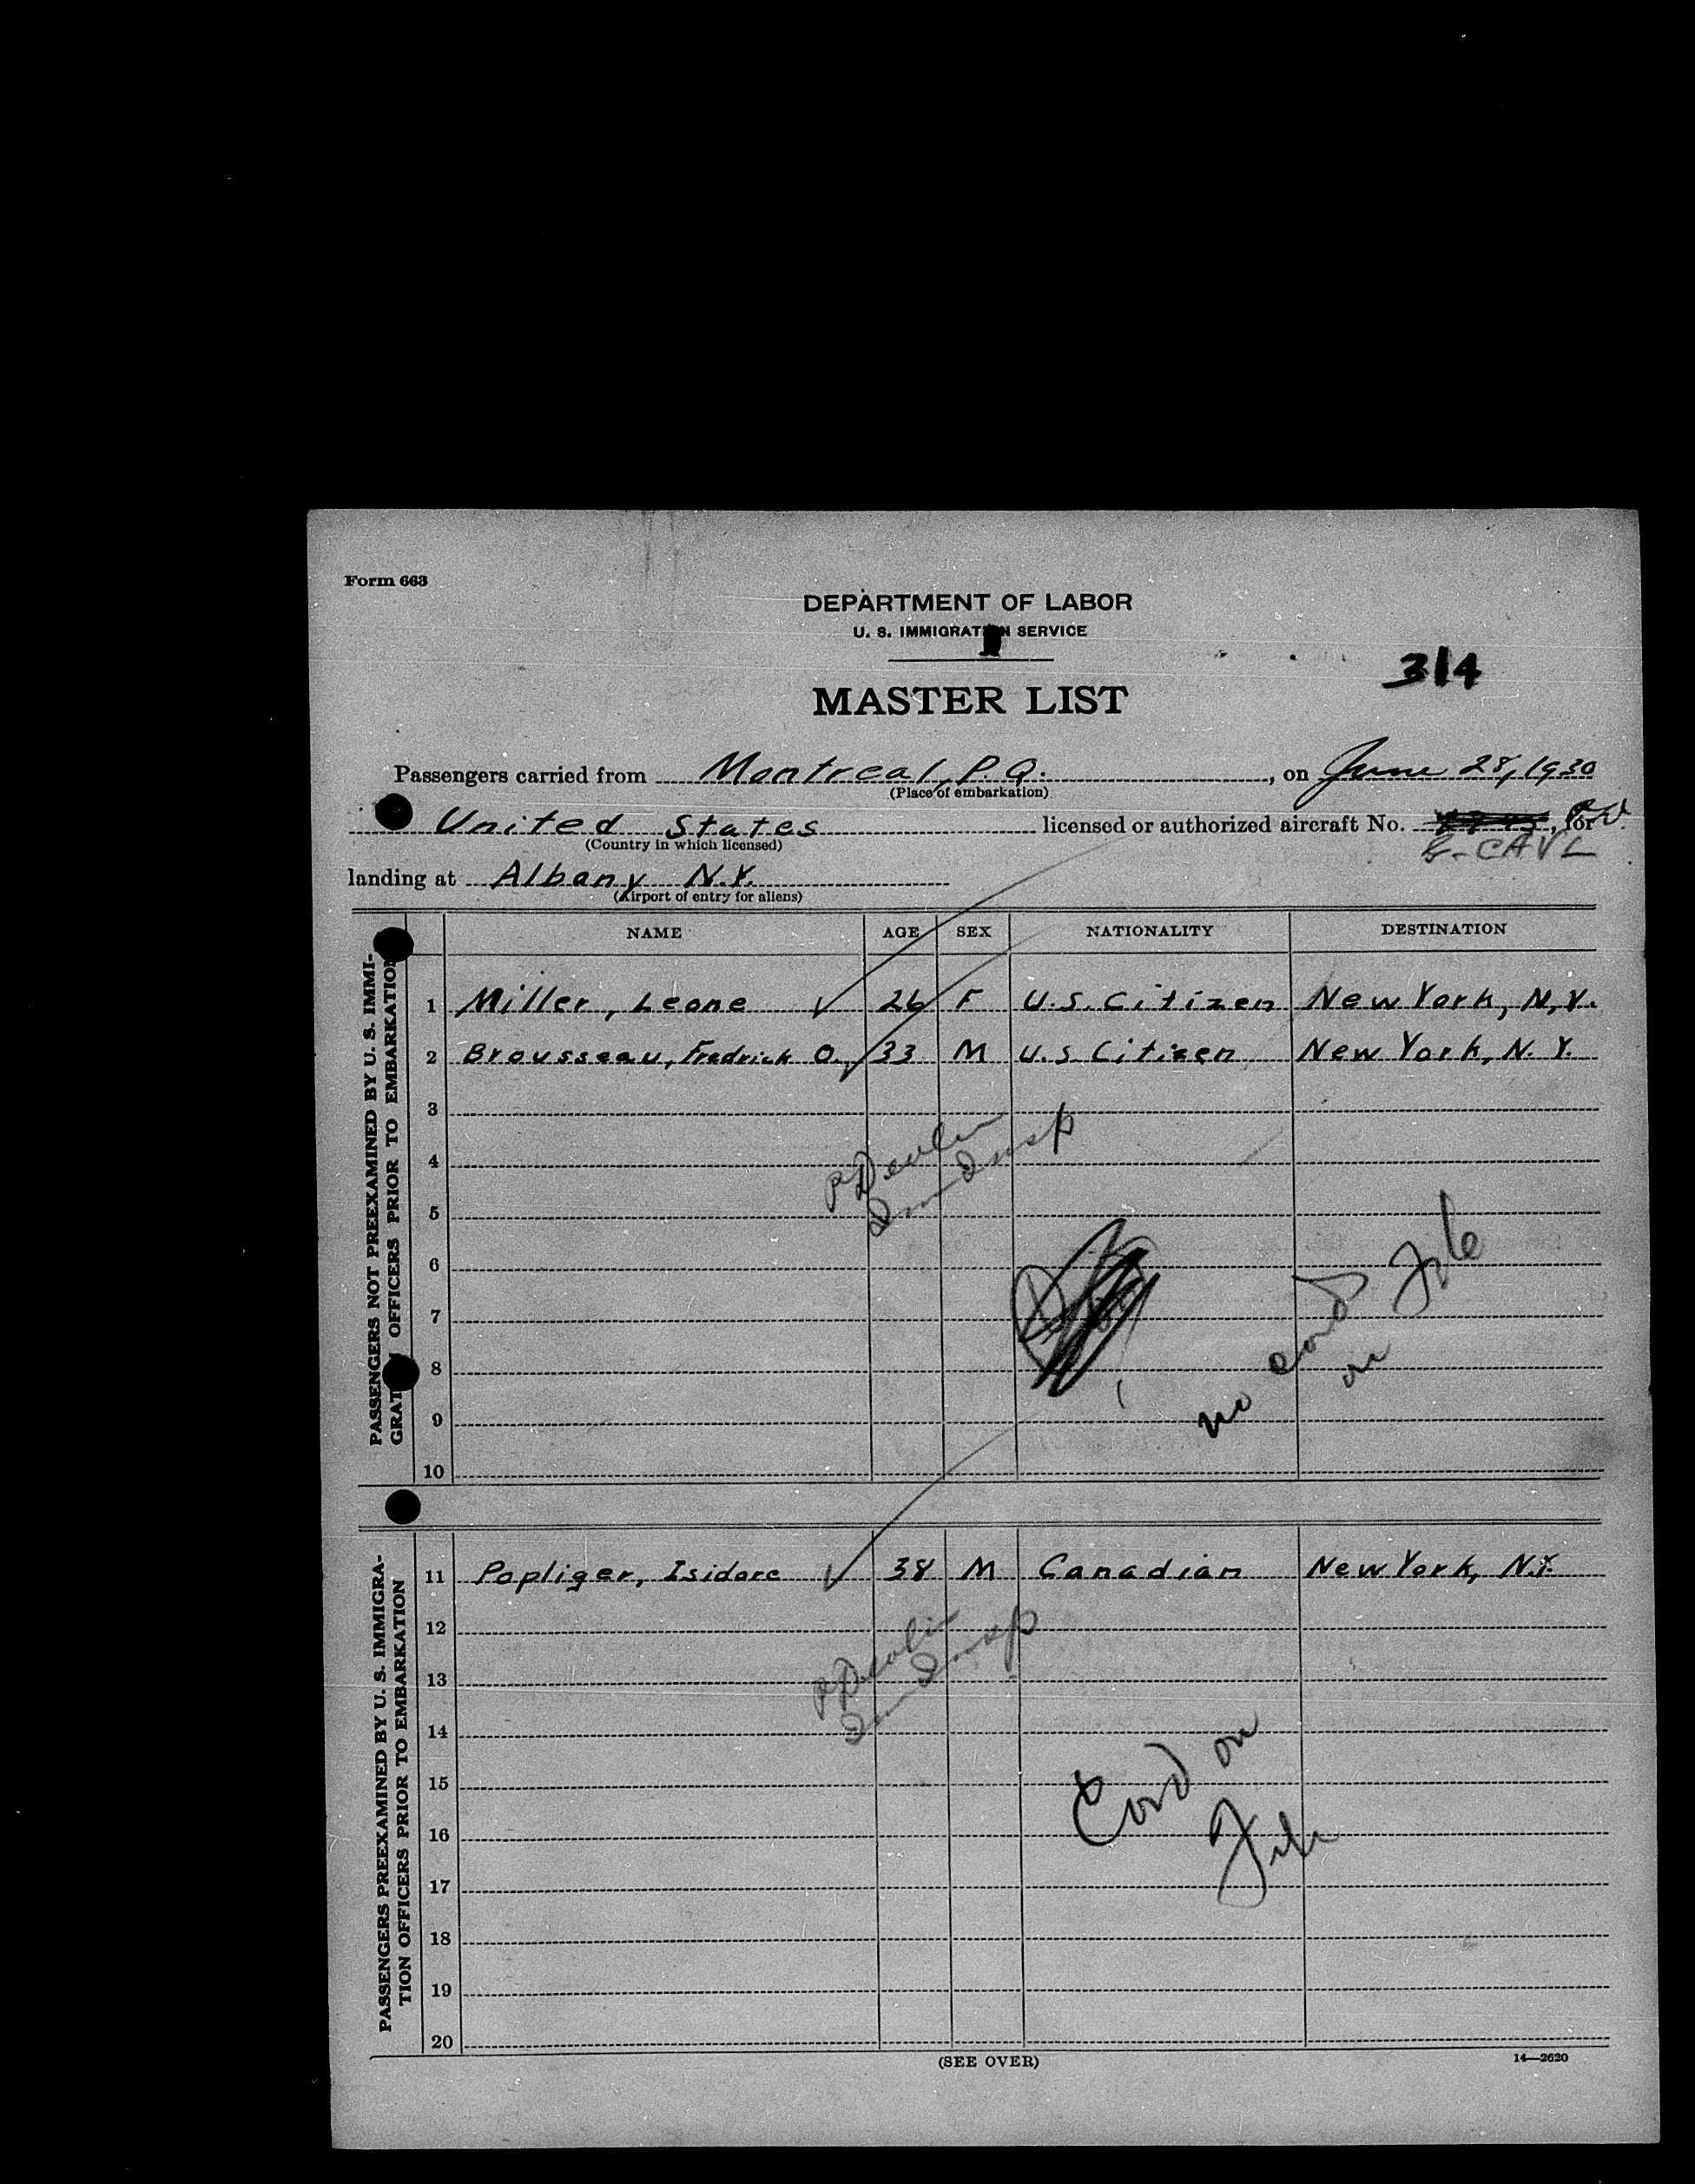 Form 663
DEPARTMENT OF LABOR
U. S. IMMIGRATION SERVICE
314
MASTER LIST
Passengers carried from Montreal, P.Q., on June 28, 1930
(Place of embarkation)
United States licensed or authorized aircraft No. , for
(Country in which licensed)
G-CAVL
landing at Albany N.Y.
(Airport of entry for aliens)
PASSENGERS NOT PREEXAMINED BY U. S. IMMI-
GRATION OFFICERS PRIOR TO EMBARKATION
NAME AGE SEX NATIONALITY DESTINATION
1 Miller, Leone 26 F U.S. Citizen New York, N.Y.
2 Brousseau, Fredrick O. 33 M U.S. Citizen New York, N.Y.
3
4
P Devlin
Imm Insp
5
6
7
8
no card on File
9
10
PASSENGERS PREEXAMINED BY U. S. IMMIGRA-
TION OFFICERS PRIOR TO EMBARKATION
11 Popliger, Isidore 38 M Canadian New York, N.Y.
12
13
P Devlin
Imm Insp
14
15
Card on
16
File
17
18
19
20
(SEE OVER)
14—2620